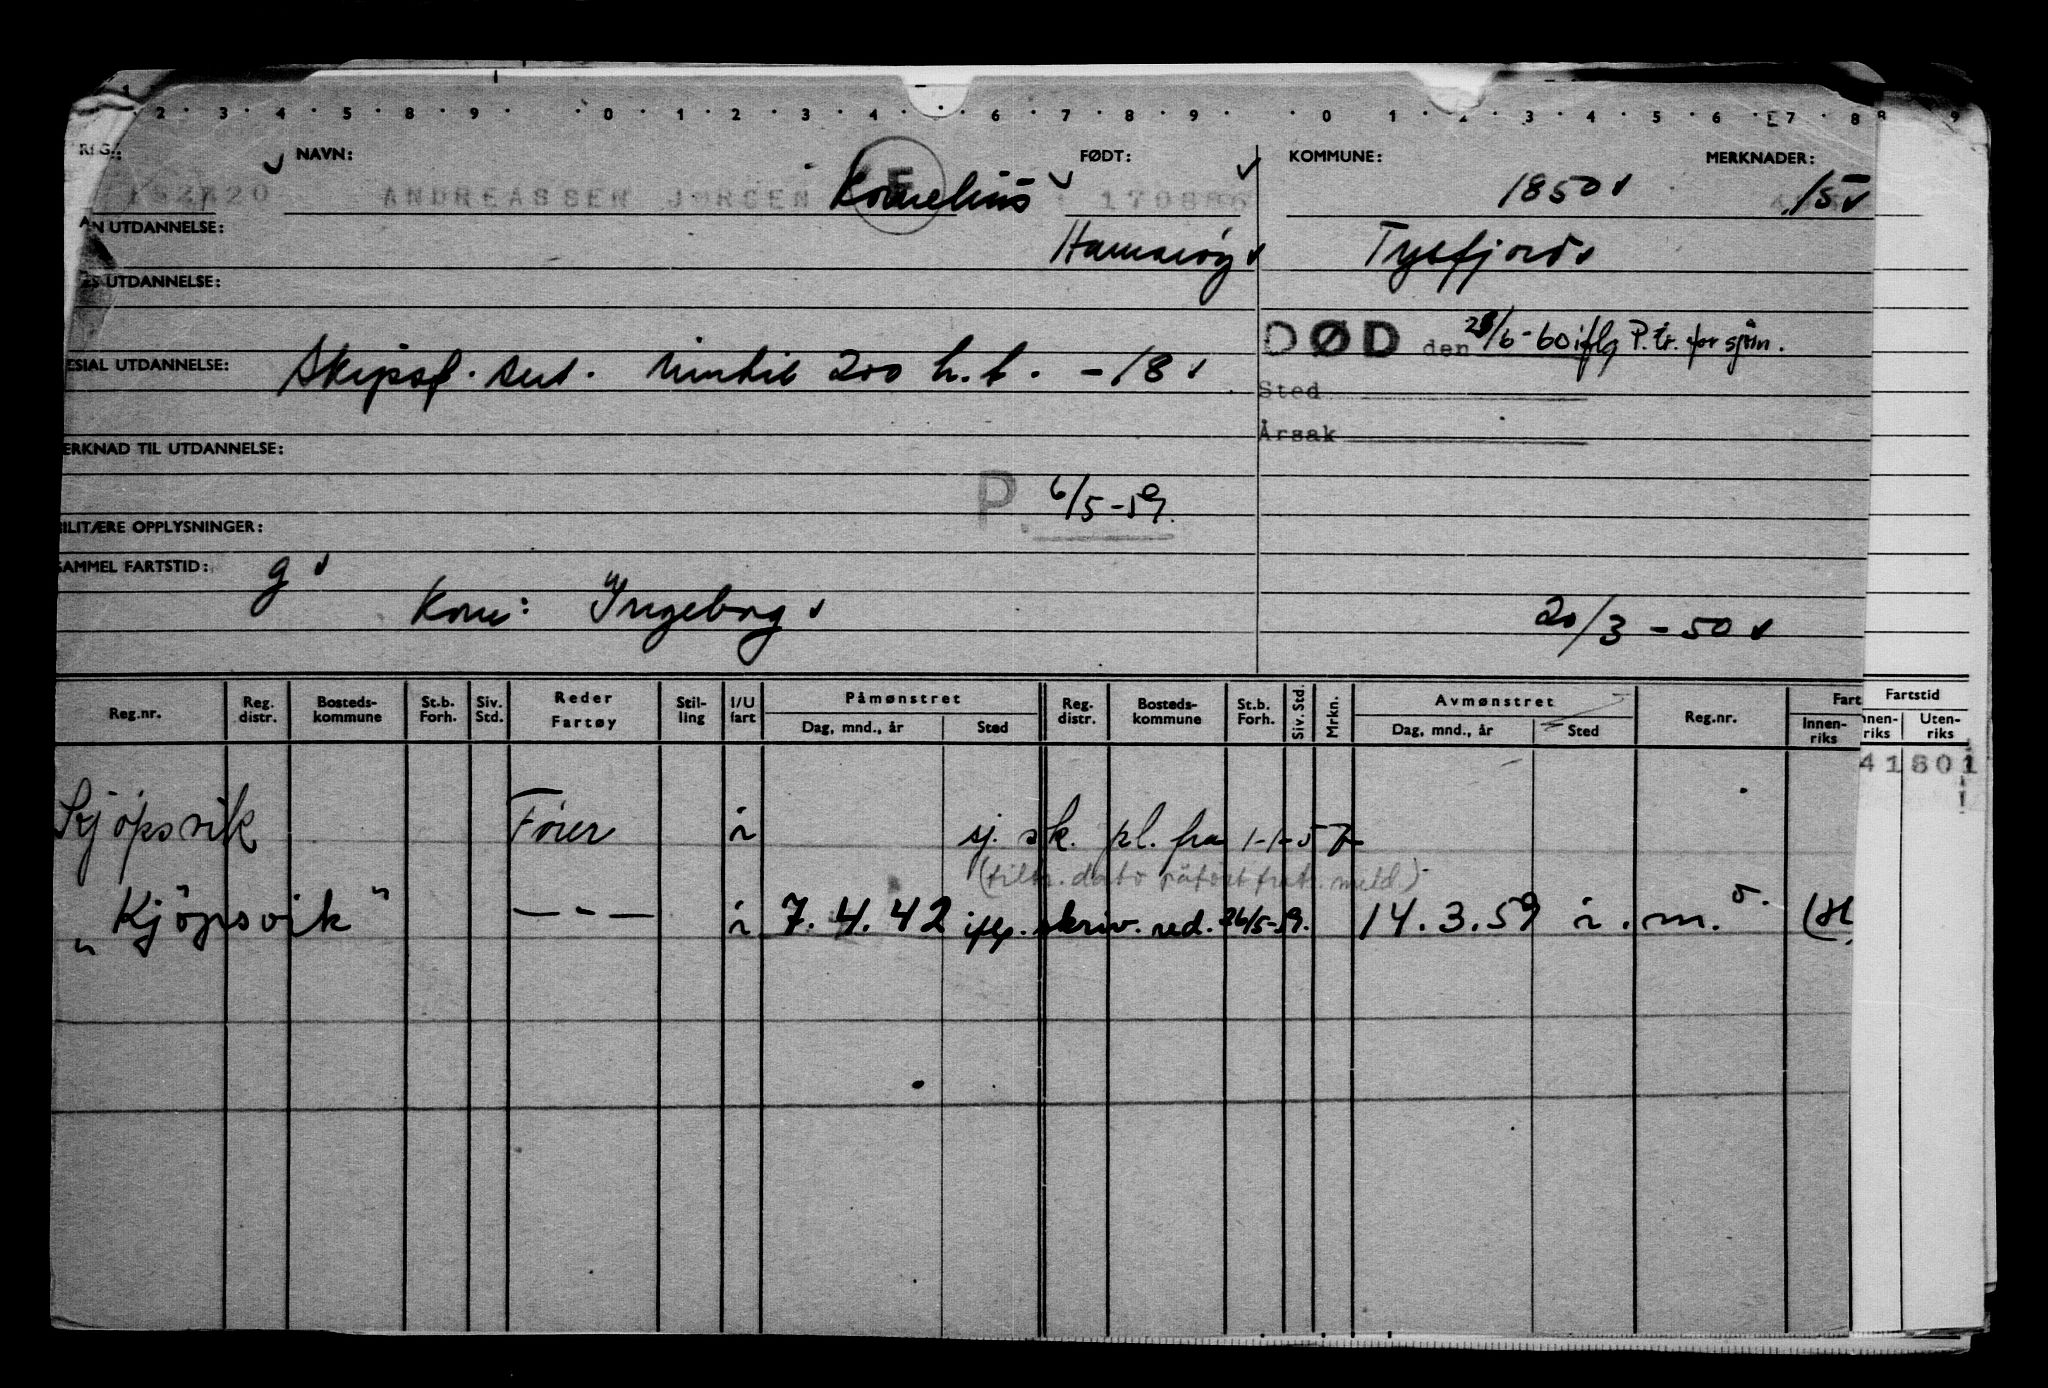 1 2 3 4 5 8 9 0 1 2 3 4 6 7 8 9 0 1 2 3 4 5 6 7 8 8 9
REG.: NAVN: FØDT: KOMMUNE: MERKNADER:
ANDREASSEN JØRGEN Kornelius E 1850 15
AN UTDANNELSE: Hamarøy Tysfjord
S UTDANNELSE:
DØD den 28/6-60 iflg P.tr. for sjøm.
ESIAL UTDANNELSE: Skipsf. sert. inntil 200 h.k. -18
Sted
Årsak
ERKNAD TIL UTDANNELSE:
P. 6/5-59.
MILITÆRE OPPLYSNINGER:
SAMMEL FARTSTID: g
Kone: Ingeborg 20/3-50
Reg.nr. Reg. distr. Bosteds-kommune St.b. Forh. Siv. Std. Reder Fartøy Stil-ling I/U fart Påmønstret Dag, mnd., år Sted Reg. distr. Bosteds-kommune St.b. Forh. Siv. Std. Mrkn. Avmønstret Dag, mnd., år Sted Reg.nr. Fart Innen-riks Fartstid nnen-riks Uten-riks
41801
Kjöpsvik Föier i sj. sk. pl. fra 1-1-57
(tiltr. dato påført fratr. meld.)
"Kjöpsvik" - - - i 7.4.42 iflg. skriv. red. 26/5-59. 14.3.59 i. m.